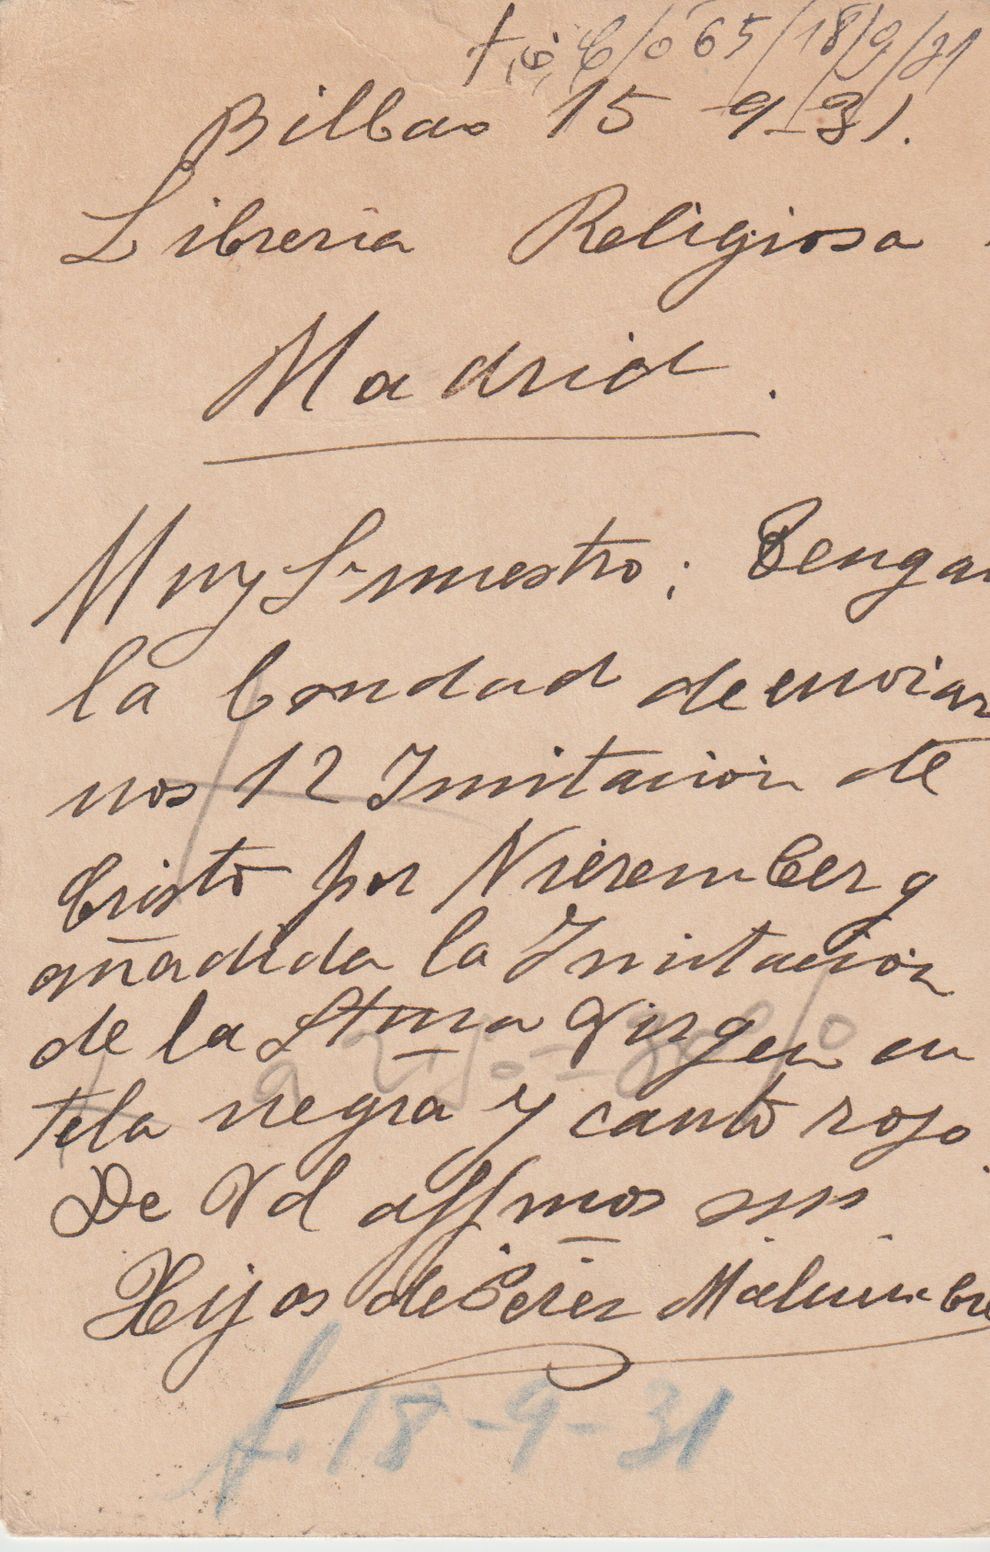 65/18/9/31
Bilbao 15-9-31.
Libreria Religiosa
Madrid.
Muy Sr nuestro; Tengan
la bondad de enviar
nos 12 Imitacion de
Cristo por Nieremberg
añadida la Imitacion
de la Stma Virgen en
tela negra y canto rojo
De Vd affmos
Hijos de Perez Malumbre
f. 18-9-31